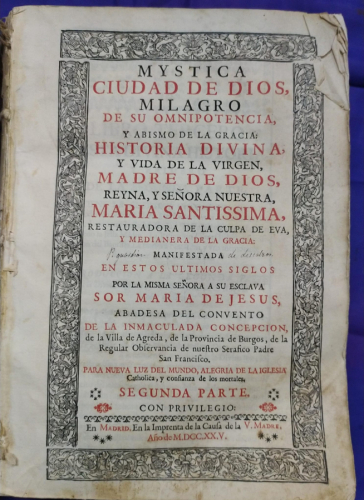 MYSTICA
CIUDAD DE DIOS,
MILAGRO
DE SU OMNIPOTENCIA,
Y ABISMO DE LA GRACIA:
HISTORIA DIVINA,
Y VIDA DE LA VIRGEN,
MADRE DE DIOS,
REYNA, Y SEÑORA NUESTRA,
MARIA SANTISSIMA,
RESTAURADORA DE LA CULPA DE EVA,
Y MEDIANERA DE LA GRACIA:
MANIFESTADA
EN ESTOS ULTIMOS SIGLOS
POR LA MISMA SEÑORA A SU ESCLAVA
SOR MARIA DE JESUS,
ABADESA DEL CONVENTO
DE LA INMACULADA CONCEPCION,
de la Villa de Agreda, de la Provincia de Burgos, de la
Regular Observancia de nuestro Serafico Padre
San Francisco.
PARA NUEVA LUZ DEL MUNDO, ALEGRIA DE LA IGLESIA
Catholica, y confianza de los mortales.
SEGUNDA PARTE.
CON PRIVILEGIO:
En MADRID. En la Imprenta de la Causa de la V. MADRE.
Año de M.DCC.XX.V.